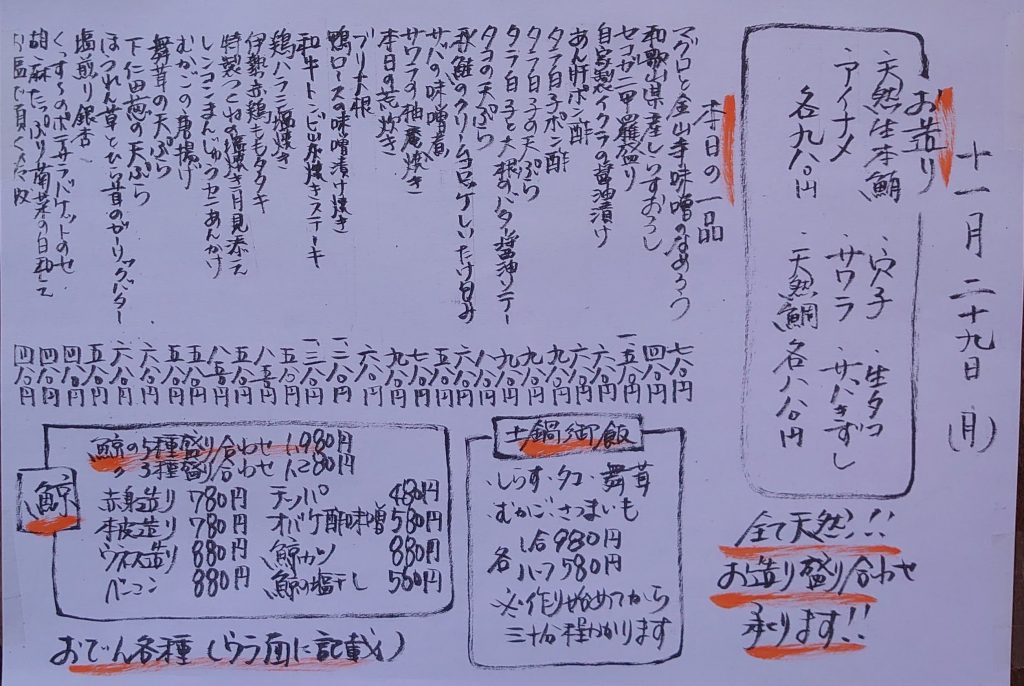 十一月二十九日(月)
お造り
・天然生本鮪
・アイナメ
各九八〇円
・穴子
・サワラ
・天然鯛
・生タコ
・サバきずし
各八八〇円
全て天然!!
お造り盛り合わせ
承ります!!
本日の一品
マグロと金山寺味噌のなめろう 七八〇円
和歌山県産しらすおろし 四八〇円
セコガニ甲羅盛り 一、五八〇円
自家製イクラの醤油漬け 六八〇円
あん肝ポン酢 六八〇円
タラ白子ポン酢 九八〇円
タラ白子の天ぷら 九八〇円
タラ白子と大根のバター醤油ソテー 九八〇円
タコの天ぷら 八八〇円
秋鮭のクリームコロッケしいたけ包み 六八〇円
サバの味噌煮 五八〇円
サワラの柚庵焼き 七八〇円
本日の荒炊き 九八〇円
ブリ大根 六八〇円
鴨ロースの味噌漬け焼き 一、二八〇円
和牛トンビ炭焼きステーキ 一、三八〇円
鶏ハラミ塩焼き 五八〇円
伊勢赤鶏ももタタキ 八五〇円
特製つくねの塩焼き月見添え
レンコンまんじゅうカニあんかけ 八五〇円
むかごの唐揚げ 五八〇円
舞茸の天ぷら 五八〇円
下仁田葱の天ぷら 六八〇円
ほうれん草とひら茸のガーリックバター 六八〇円
塩煎り銀杏 五八〇円
くんすーのポテサラバケットのせ 四八〇円
胡麻たっぷり南菜の白和え 四八〇円
四八〇円
土鍋御飯
・しらす・タコ・舞茸
・むかご・さつまいも
各 1合980円
ハーフ580円
※作り始めてから
三十分程かかります
鯨
鯨の5種盛り合わせ 1,980円
〃3種盛り合わせ 1,280円
赤身造り 780円
本皮造り 780円
ウネス造り 880円
ベーコン 880円
テッパ 480円
オバケ酢味噌 580円
鯨カツ 880円
鯨の塩干し 580円
おでん各種(ウラ面に記載)